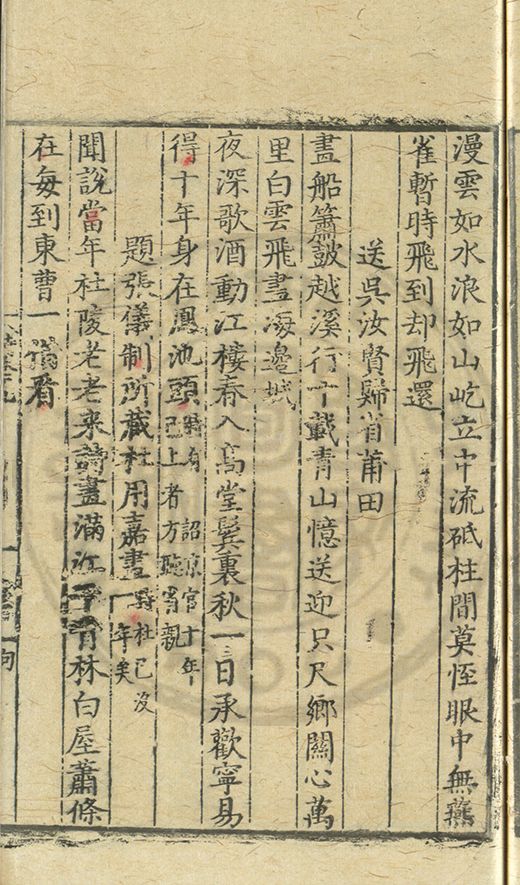 漫雲如水浪如山屹立中流砥柱間莫恠眼中無燕
雀暫時飛到却飛還
送吳汝賢歸省莆田
畫船簫鼓越溪行十載青山憶送迎只尺鄉關心萬
里白雲飛盡海邊城
夜深歌酒動江樓春入高堂鬂裏秋一日承歡寧易
得十年身在鳳池頭時有詔京官十年已上者方聽省親
題張儀制所藏杜用嘉畫時杜已沒一年矣
聞說當年杜陵老老來詩畫滿江青林白屋蕭條
在每到東曹一看